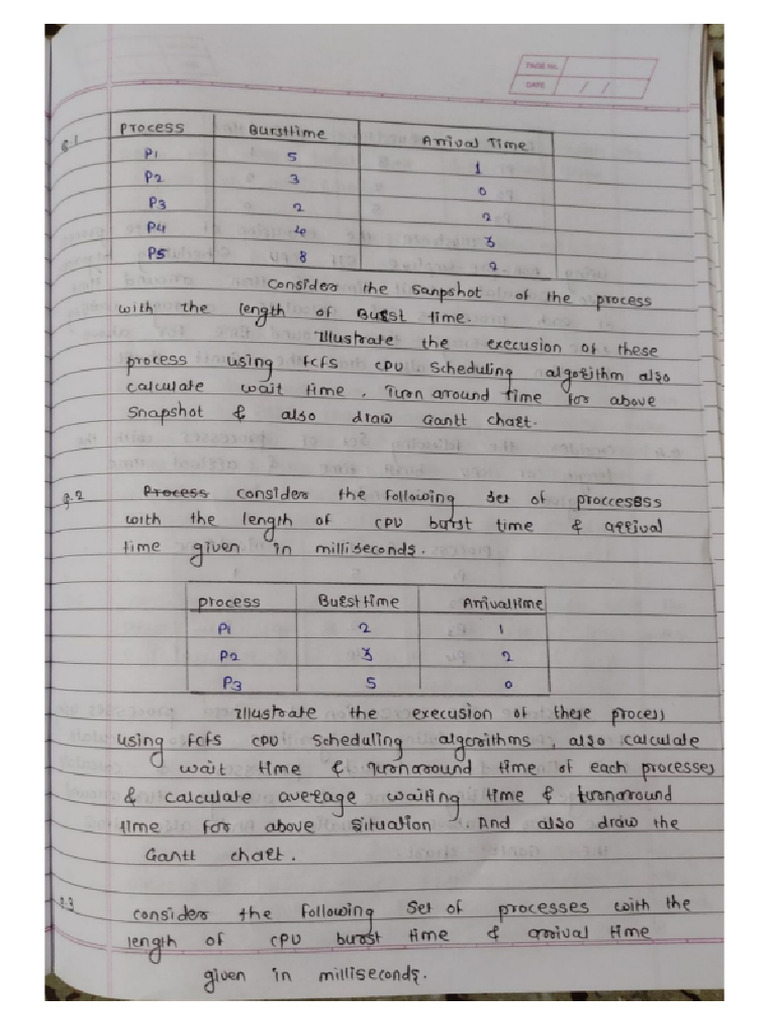 PAGE No.
DATE / /
Q.1 Process Bursttime Arrival Time
P1 5 1
P2 3 0
P3 2 2
P4 4 3
P5 8 2
Consider the sanpshot of the process
with the length of Burst time.
Illustrate the execusion of these
process using fcfs cpu scheduling algorithm also
calculate wait time, Turn around time for above
Snapshot & also draw Gantt chart.
Q.2 Process consider the following set of proccesess
with the length of CPU burst time & arrival
time given in milliseconds.
process Bursttime Arrivaltime
P1 2 1
P2 3 2
P3 5 0
Illustrate the execusion of these process
using fcfs CPU Scheduling algorithms, also calculate
wait time & turnaround time of each processes
& calculate average waiting time & turnaround
time for above situation. And also draw the
Gantt chart.
Q.3
consider the following set of processes with the
length of CPU burst time & arrival time
given in milliseconds.